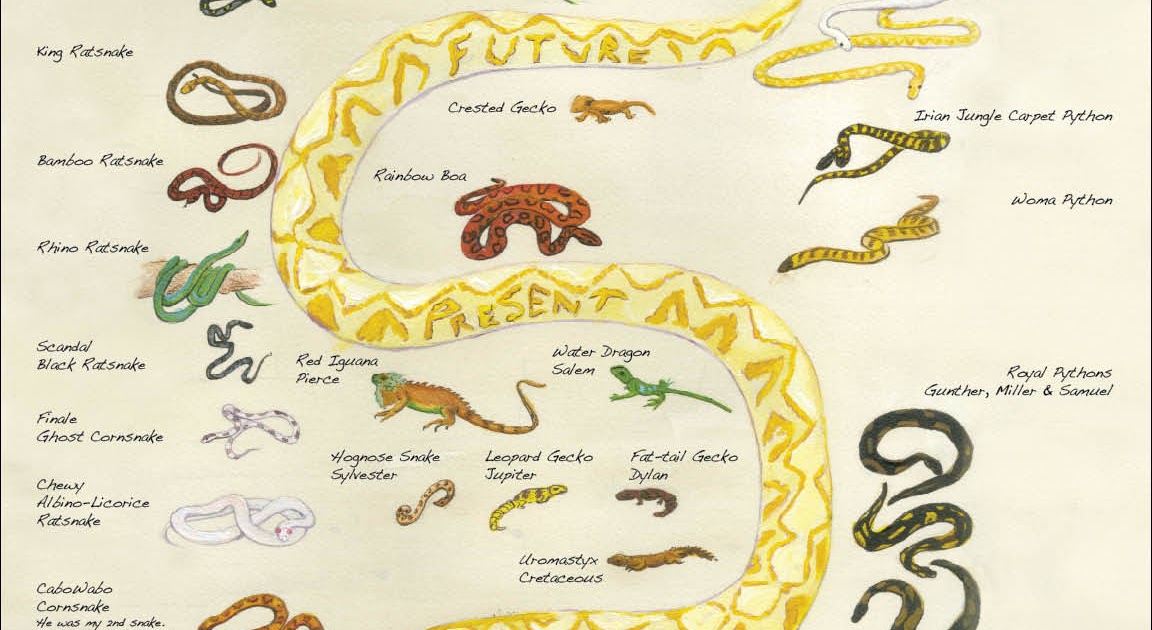 FUTURE
King Ratsnake
Crested Gecko
Irian Jungle Carpet Python
Bamboo Ratsnake
Rainbow Boa
Woma Python
Rhino Ratsnake
PRESENT
Scandal
Black Ratsnake
Red Iguana
Pierce
Water Dragon
Salem
Royal Pythons
Gunther, Miller & Samuel
Finale
Ghost Cornsnake
Hognose Snake
Sylvester
Leopard Gecko
Jupiter
Fat-tail Gecko
Dylan
Chewy
Albino-Licorice
Ratsnake
Uromastyx
Cretaceous
CaboWabo
Cornsnake
He was my 2nd snake.